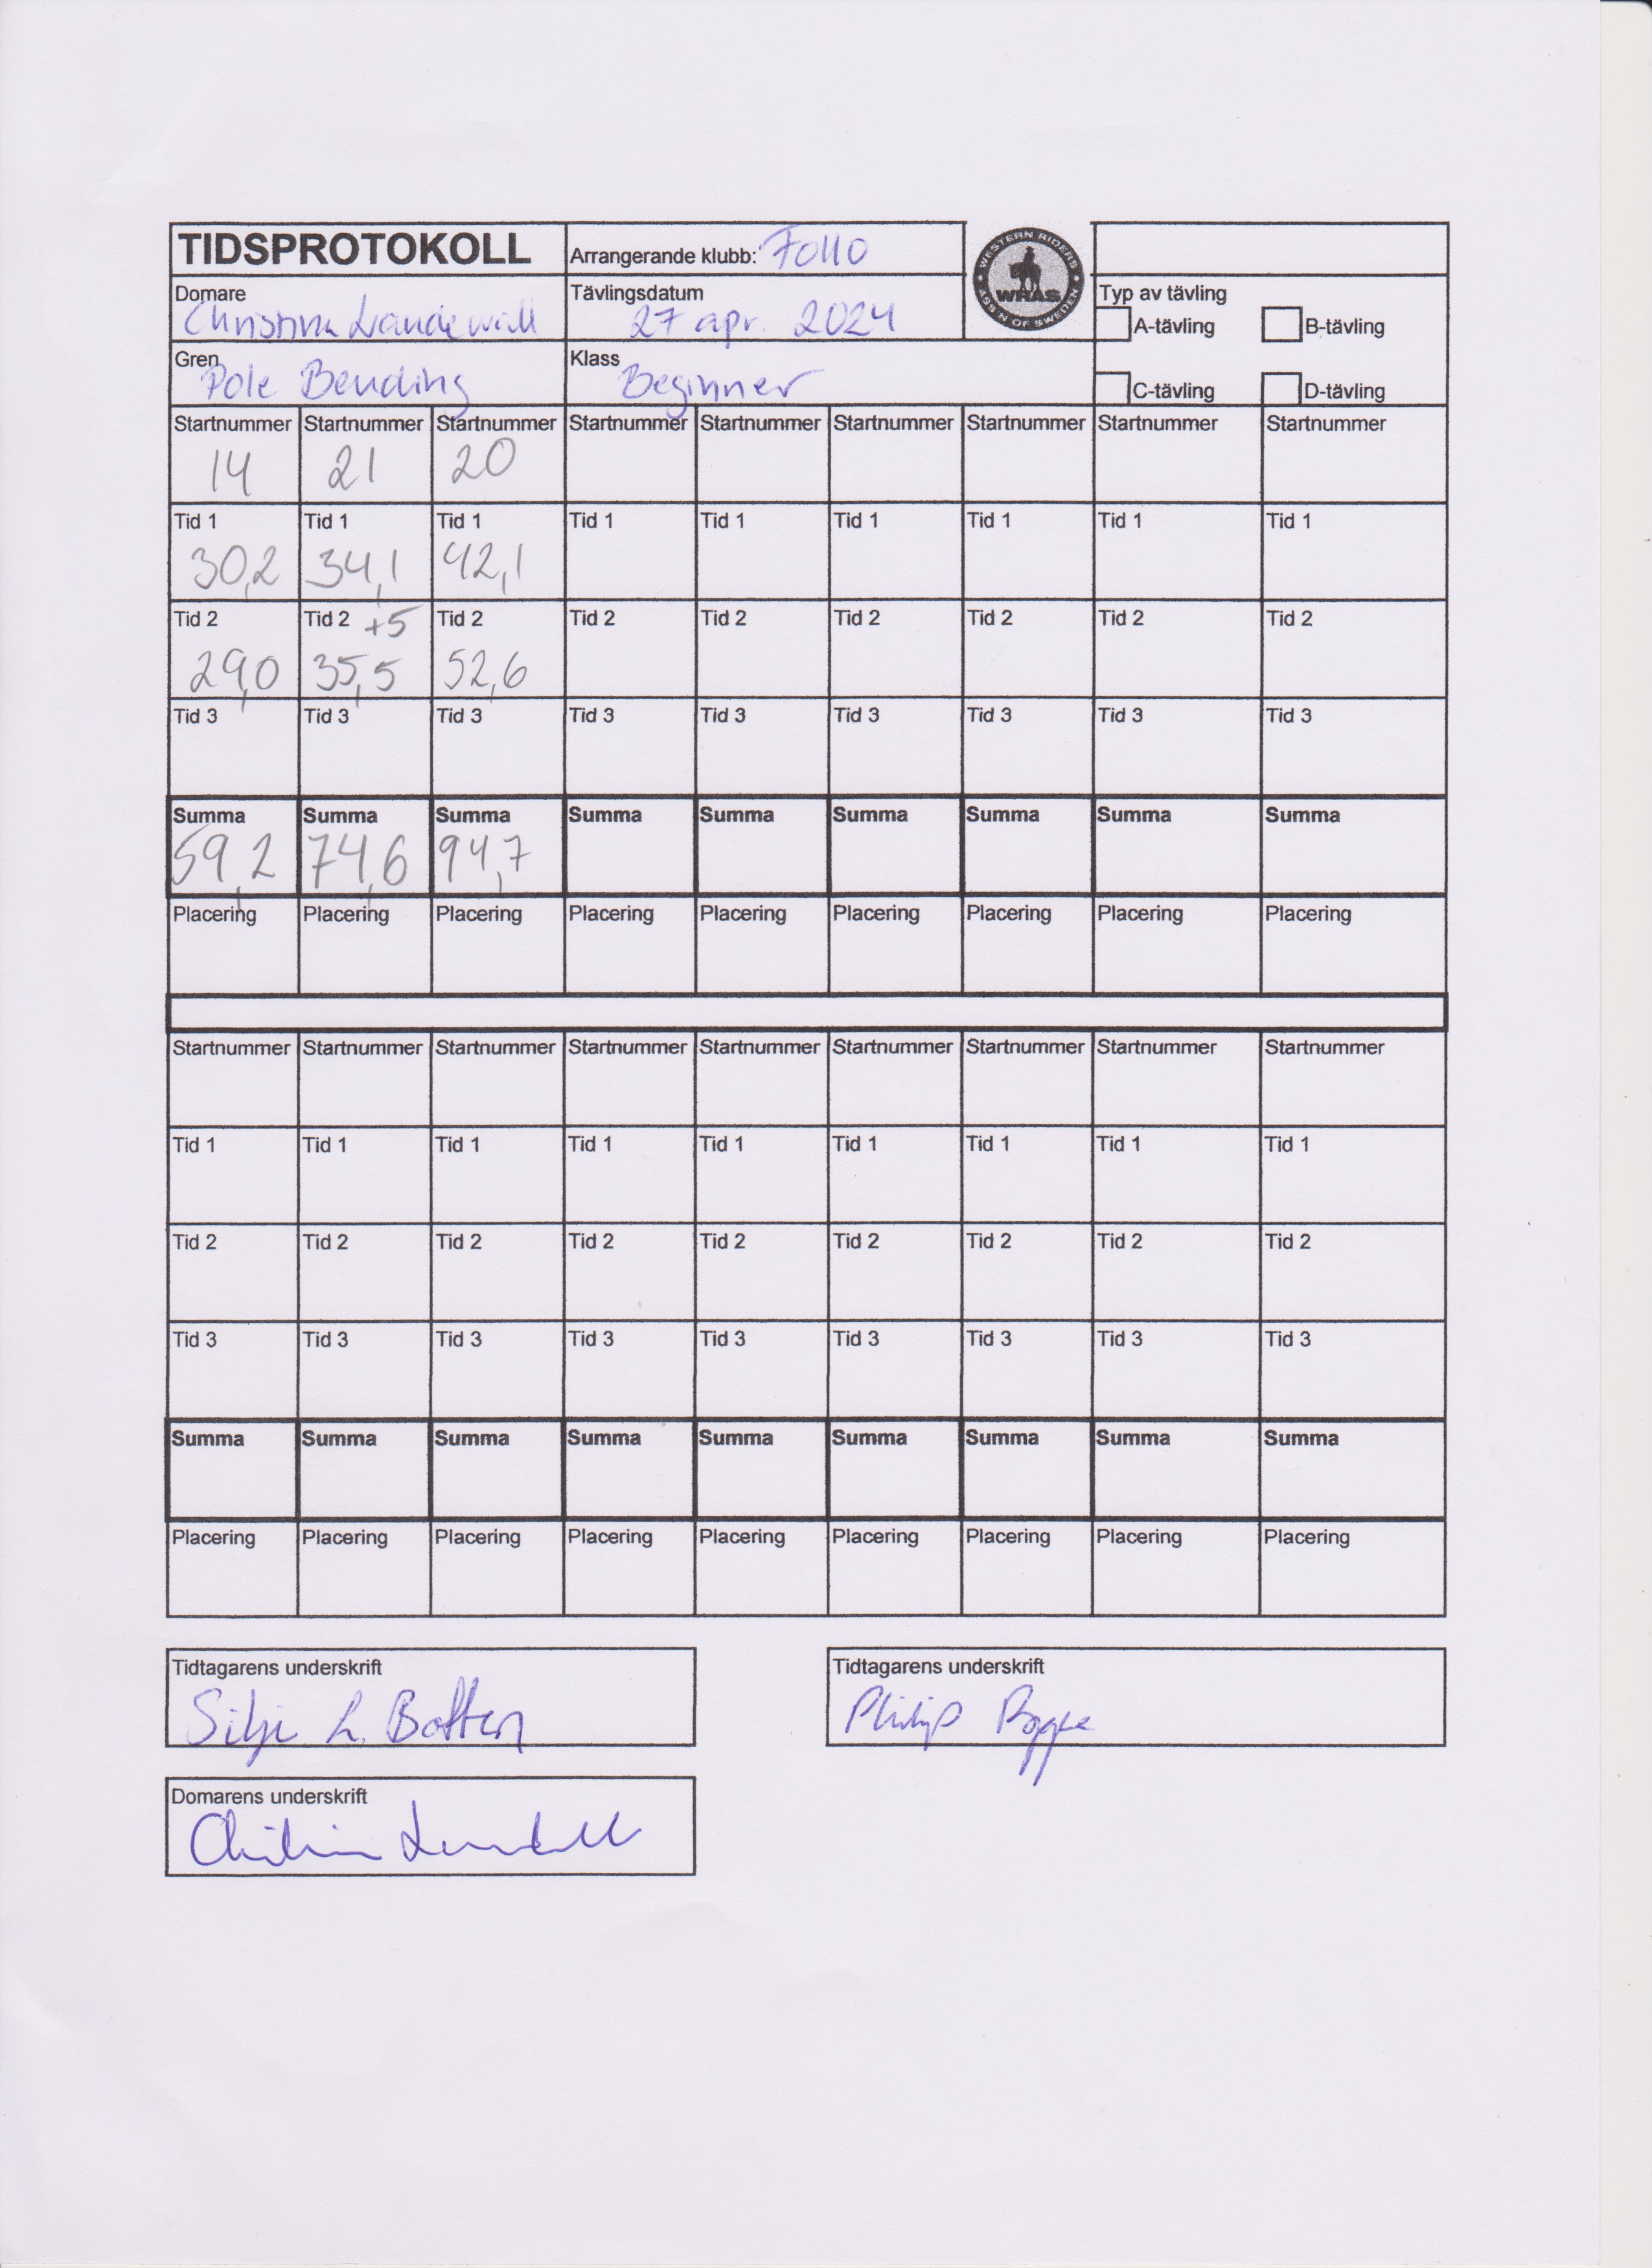 TIDSPROTOKOLL Arrangerande klubb: Follo
WESTERN RIDERS ASS'N OF SWEDEN
WRAS
Domare Tävlingsdatum Typ av tävling
Christina Landewall 27 apr. 2024 A-tävling B-tävling
Gren Klass
Pole Bending Beginner C-tävling D-tävling
Startnummer Startnummer Startnummer Startnummer Startnummer Startnummer Startnummer Startnummer Startnummer
14 21 20
Tid 1 Tid 1 Tid 1 Tid 1 Tid 1 Tid 1 Tid 1 Tid 1 Tid 1
30,2 34,1 42,1
Tid 2 Tid 2 +5 Tid 2 Tid 2 Tid 2 Tid 2 Tid 2 Tid 2 Tid 2
29,0 35,5 52,6
Tid 3 Tid 3 Tid 3 Tid 3 Tid 3 Tid 3 Tid 3 Tid 3 Tid 3
Summa Summa Summa Summa Summa Summa Summa Summa Summa
59,2 74,6 94,7
Placering Placering Placering Placering Placering Placering Placering Placering Placering
Startnummer Startnummer Startnummer Startnummer Startnummer Startnummer Startnummer Startnummer Startnummer
Tid 1 Tid 1 Tid 1 Tid 1 Tid 1 Tid 1 Tid 1 Tid 1 Tid 1
Tid 2 Tid 2 Tid 2 Tid 2 Tid 2 Tid 2 Tid 2 Tid 2 Tid 2
Tid 3 Tid 3 Tid 3 Tid 3 Tid 3 Tid 3 Tid 3 Tid 3 Tid 3
Summa Summa Summa Summa Summa Summa Summa Summa Summa
Placering Placering Placering Placering Placering Placering Placering Placering Placering
Tidtagarens underskrift Tidtagarens underskrift
Silje L. Botten Philip
Domarens underskrift